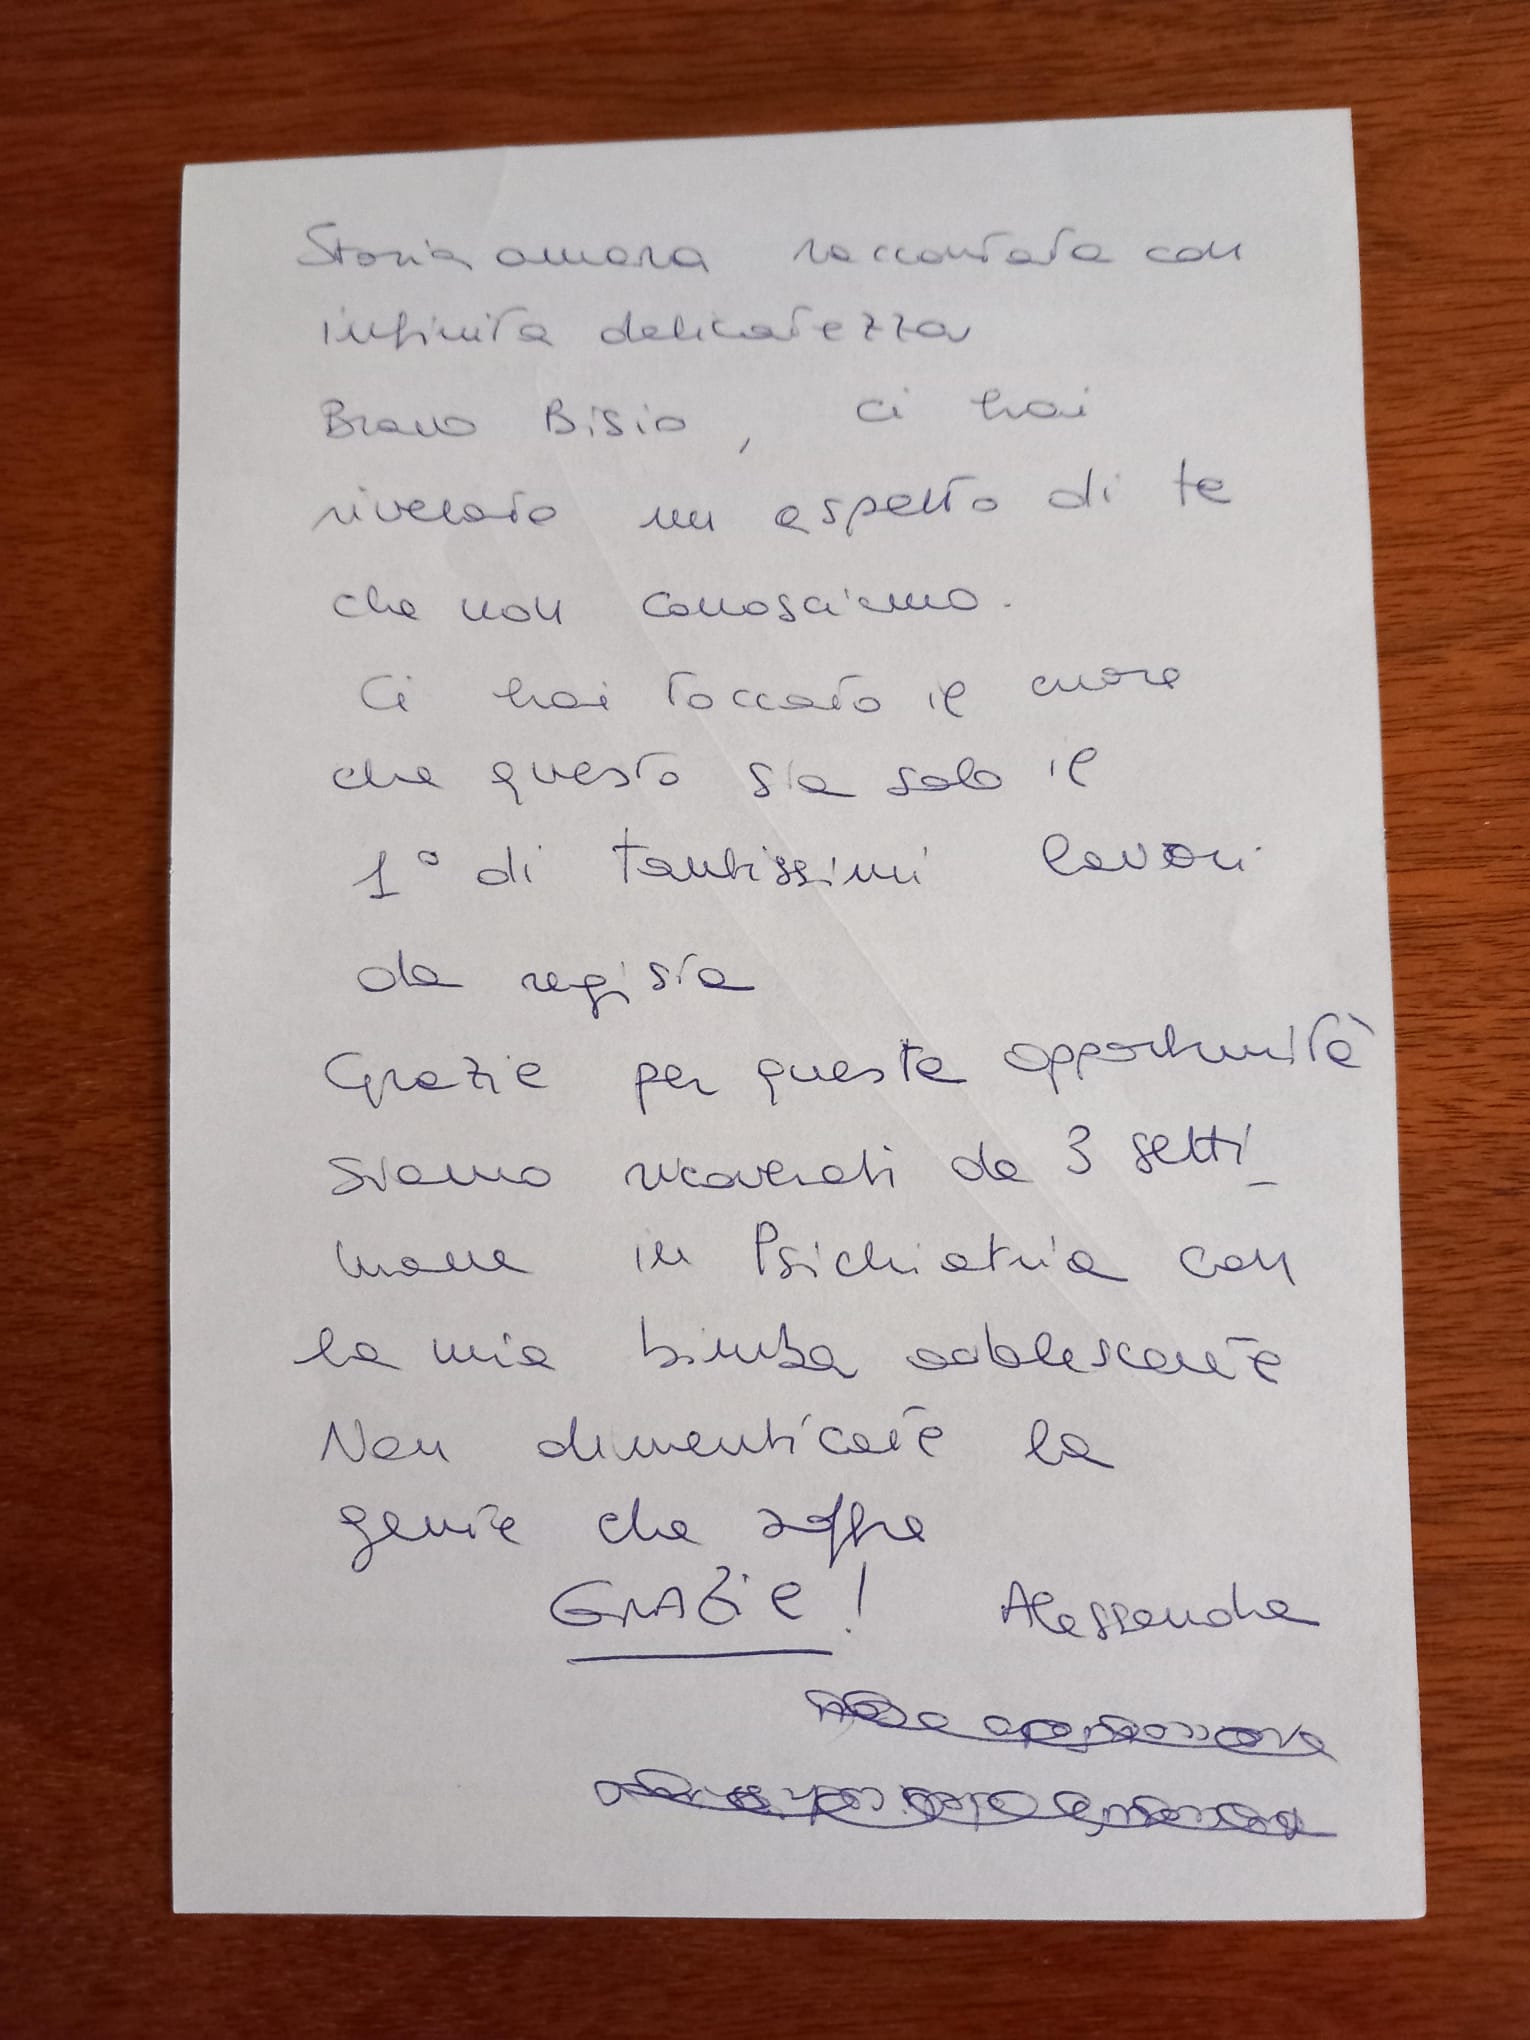 Storia amara raccontata con
infinita delicatezza
Bravo Bisio, ci hai
rivelato un aspetto di te
che non conosciamo.
Ci hai toccato il cuore
che questo sia solo il
1° di tantissimi lavori
da regista
Grazie per questa opportunità
siamo ricoverati da 3 setti_
mane in Psichiatria con
la mia bimba adolescente
Non dimenticate la
gente che soffre
GRAZIE! Alessandra